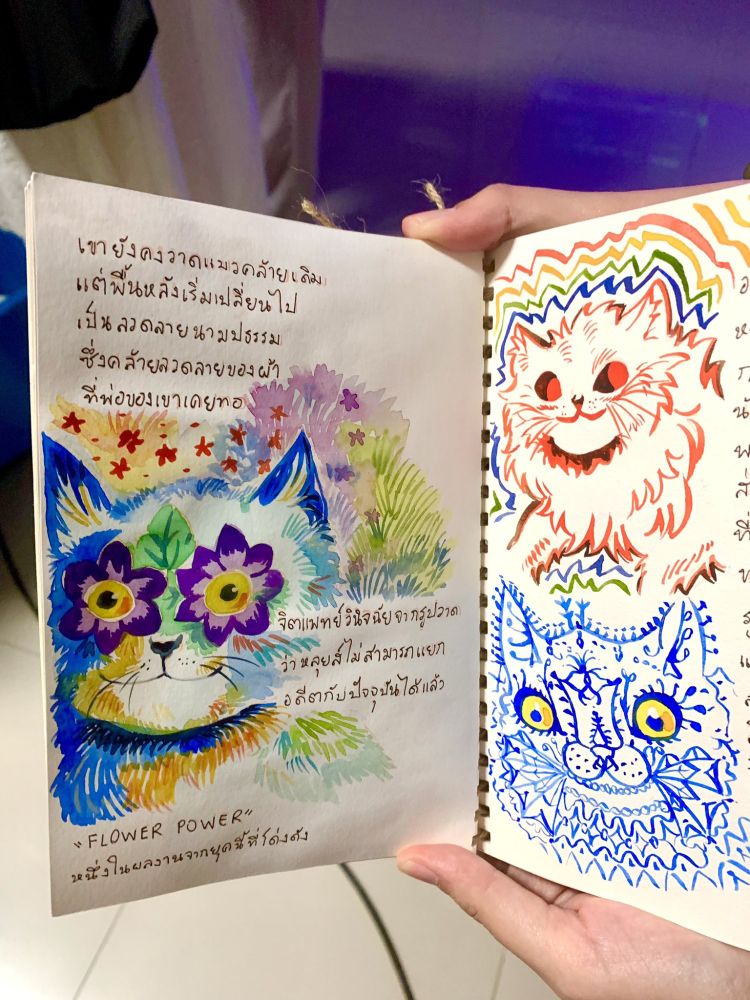 เขายังคงวาดแมวคล้ายเดิม
แต่พื้นหลังเริ่มเปลี่ยนไป
เป็นลวดลายนามปธรรม
ซึ่งคล้ายลวดลายของผ้า
ที่พ่อของเขาเคยทอ
จิตแพทย์วินิจฉัยจากรูปวาด
ว่าหลุยส์ไม่สามารถแยก
อดีตกับปัจจุบันได้แล้ว
"FLOWER POWER"
หนึ่งในผลงานจากยุคนี้ที่โด่งดัง